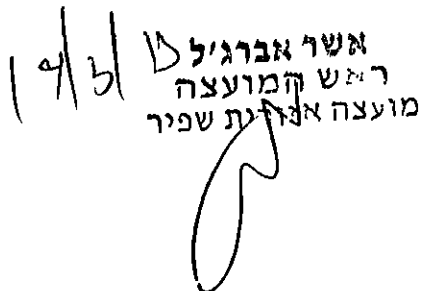 אשר אברג'יל
ראש המועצה
מועצה אזורית שפיר